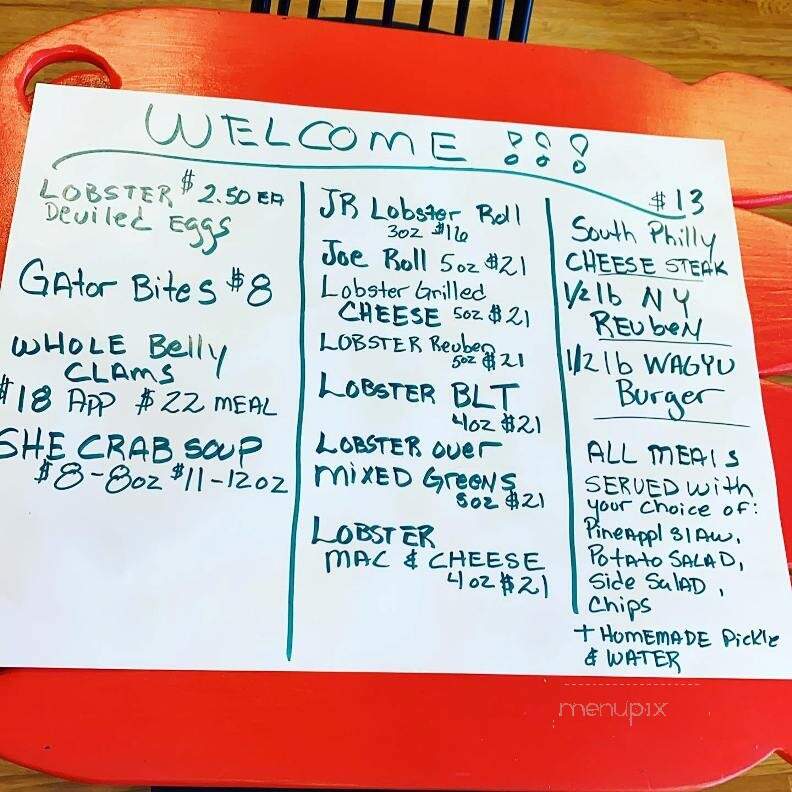 WELCOME !!!
LOBSTER $2.50 EA
Deviled Eggs
GAtor Bites $8
WHOLE Belly
CLAMS
$18 APP $22 MEAL
SHE CRAB SOUP
$8-8oz $11-12oz
JR Lobster Roll
3oz $16
Joe Roll 5oz $21
Lobster Grilled
CHEESE 5oz $21
LOBSTER Reuben
5oz $21
LOBSTER BLT
4oz $21
LOBSTER over
MIXED Greens
5oz $21
LOBSTER
MAC & CHEESE
4oz $21
$13
South Philly
CHEESE STEAK
1/2 lb NY
REubeN
1/2 lb WAGYU
Burger
ALL MEAlS
SERVED with
your Choice of:
PineAppl SlAw,
PotAto SALAD,
Side SalAD,
Chips
+ HomEMADE Pickle
& WATER
menupix